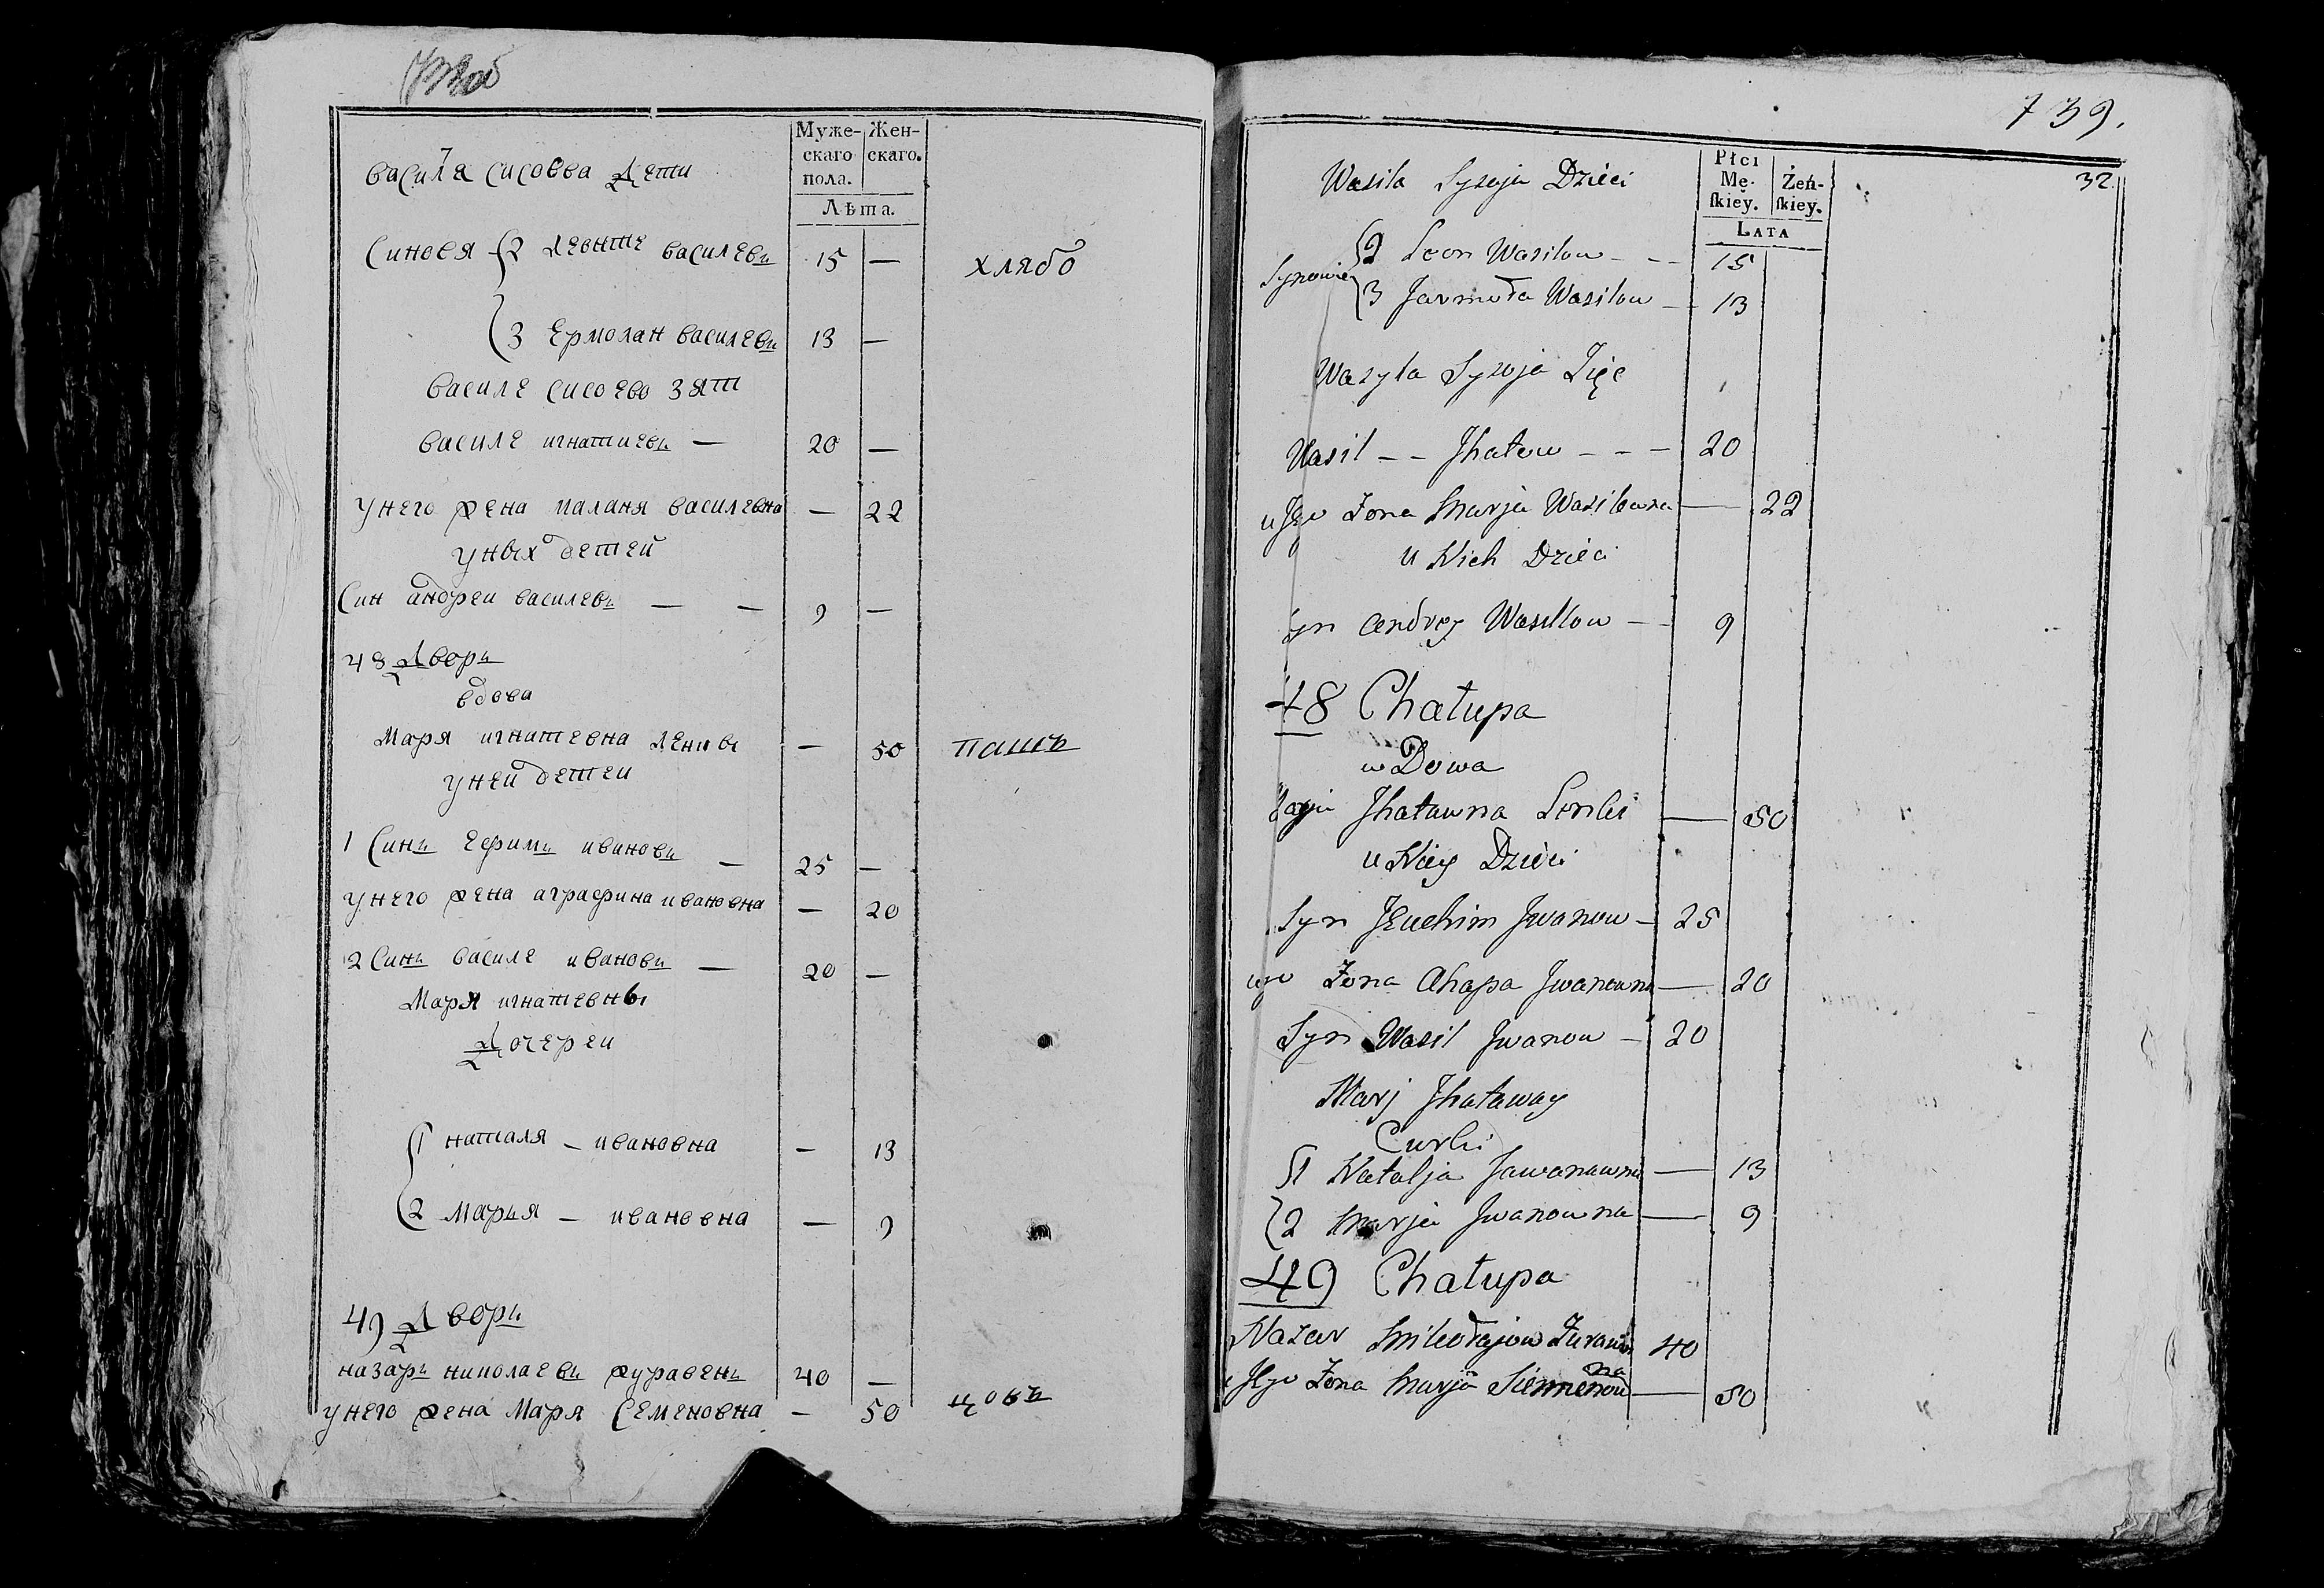 Муже- Жен-
скаго скаго.
пола.
Лѣта.
7
василя сисовва Дети
Синовя 2 Левнте василеви 15 —
хлябо
3 Ермолан василеви 13 —
василе сисоево зят
василе игнатиеви — 20 —
унего жена паланя василевна — 22
уных детей
Син андреи василеви — — 9 —
48 Двори
вдова
Маря игнатевна — 50 пашъ
уней детеи
1 Сини Ефими иванови — 25 —
унего жена аграфина ивановна — 20
2 Сини василе иванови — 20 —
Маря игнатевны
Дочереи
1 наталя — ивановна — 13
2 Марья — ивановна — 9
49 Двори
назари николаеви журавени 40 —
унего жена Маря Семеновна — 50 цовъ
739.
32
Płci
Mę- Żeń-
skiey. skiey.
LATA
Wasila Sysoja Dzieci
Synowie 2 Leon Wasilow — — 15
3 Jarmoła Wasilow — 13
Wasyla Sysoja Zięc
Wasil — — Jhatow — — — 20
u Jego Zona Marja Wasilowna — 22
u Nich Dzieci
Syn Andrey Wasilow — — 9
48 Chałupa
wDowa
Jhatowna — 50
u Niey Dzieci
Syn Jeuchim Jwanow — 25
Zona Ahapa Jwanowna — 20
Syn Wasil Jwanow — 20
Marj Jhatoway
Curki
1 Natalja Jawanowna — 13
2 Marja Jwanowna — 9
49 Chałupa
Nazar Mikołajow 40
u Jego Zona Marja Siemenowna — 50